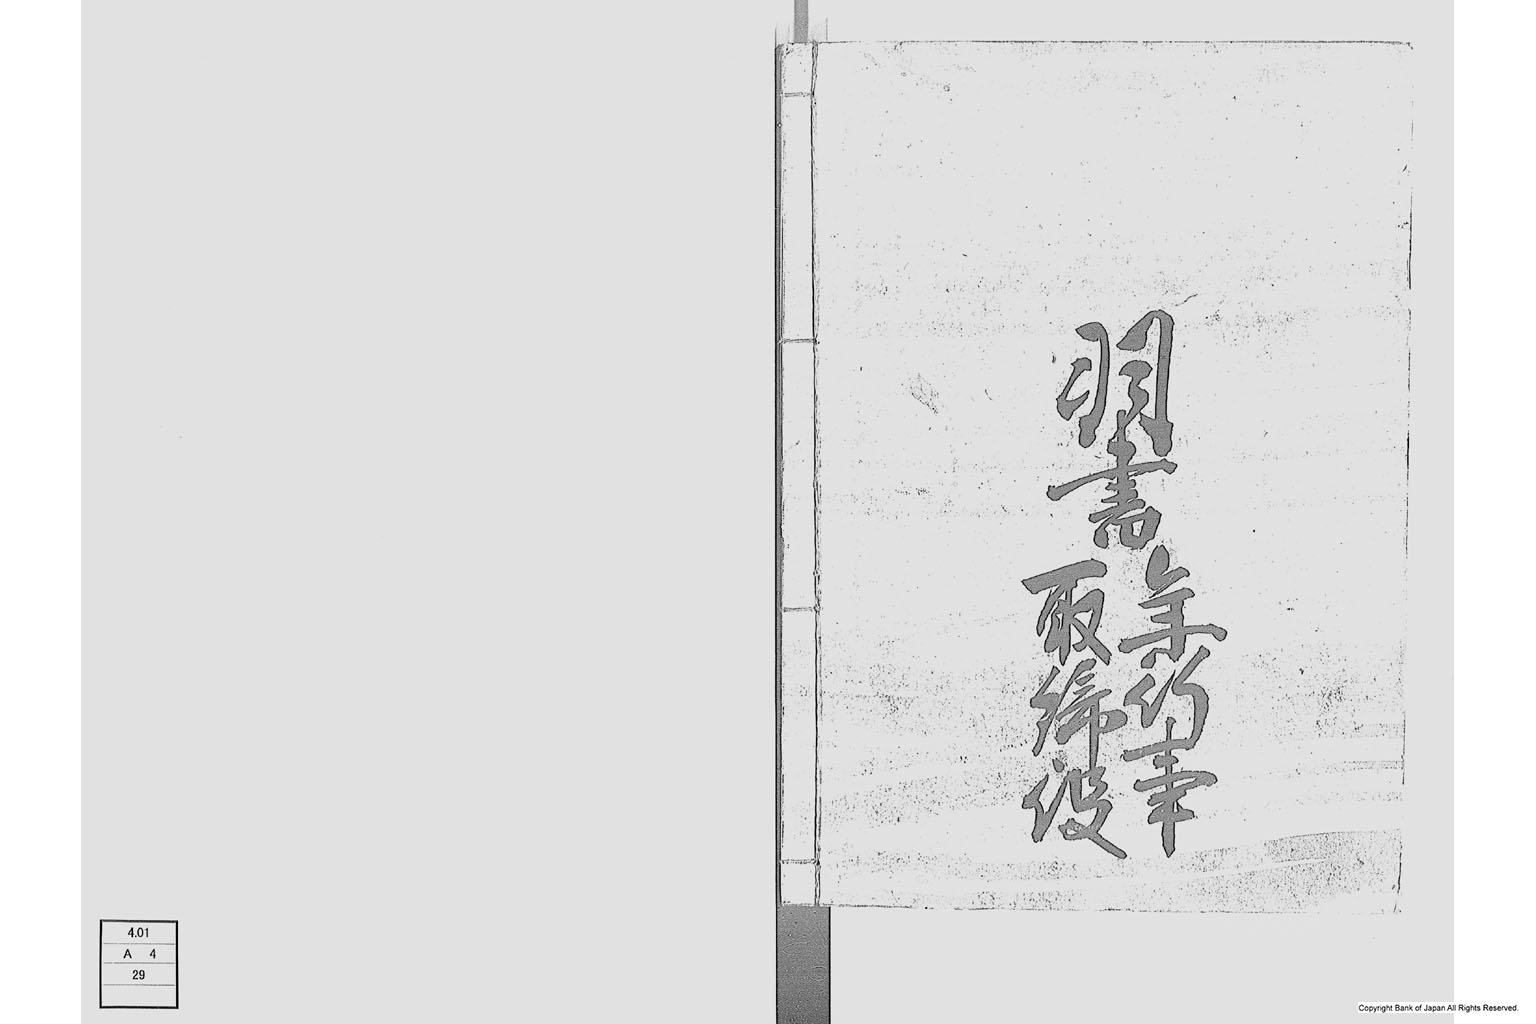 羽書
年行事
取締役
4.01
A 4
29
Copyright Bank of Japan All Rights Reserved.